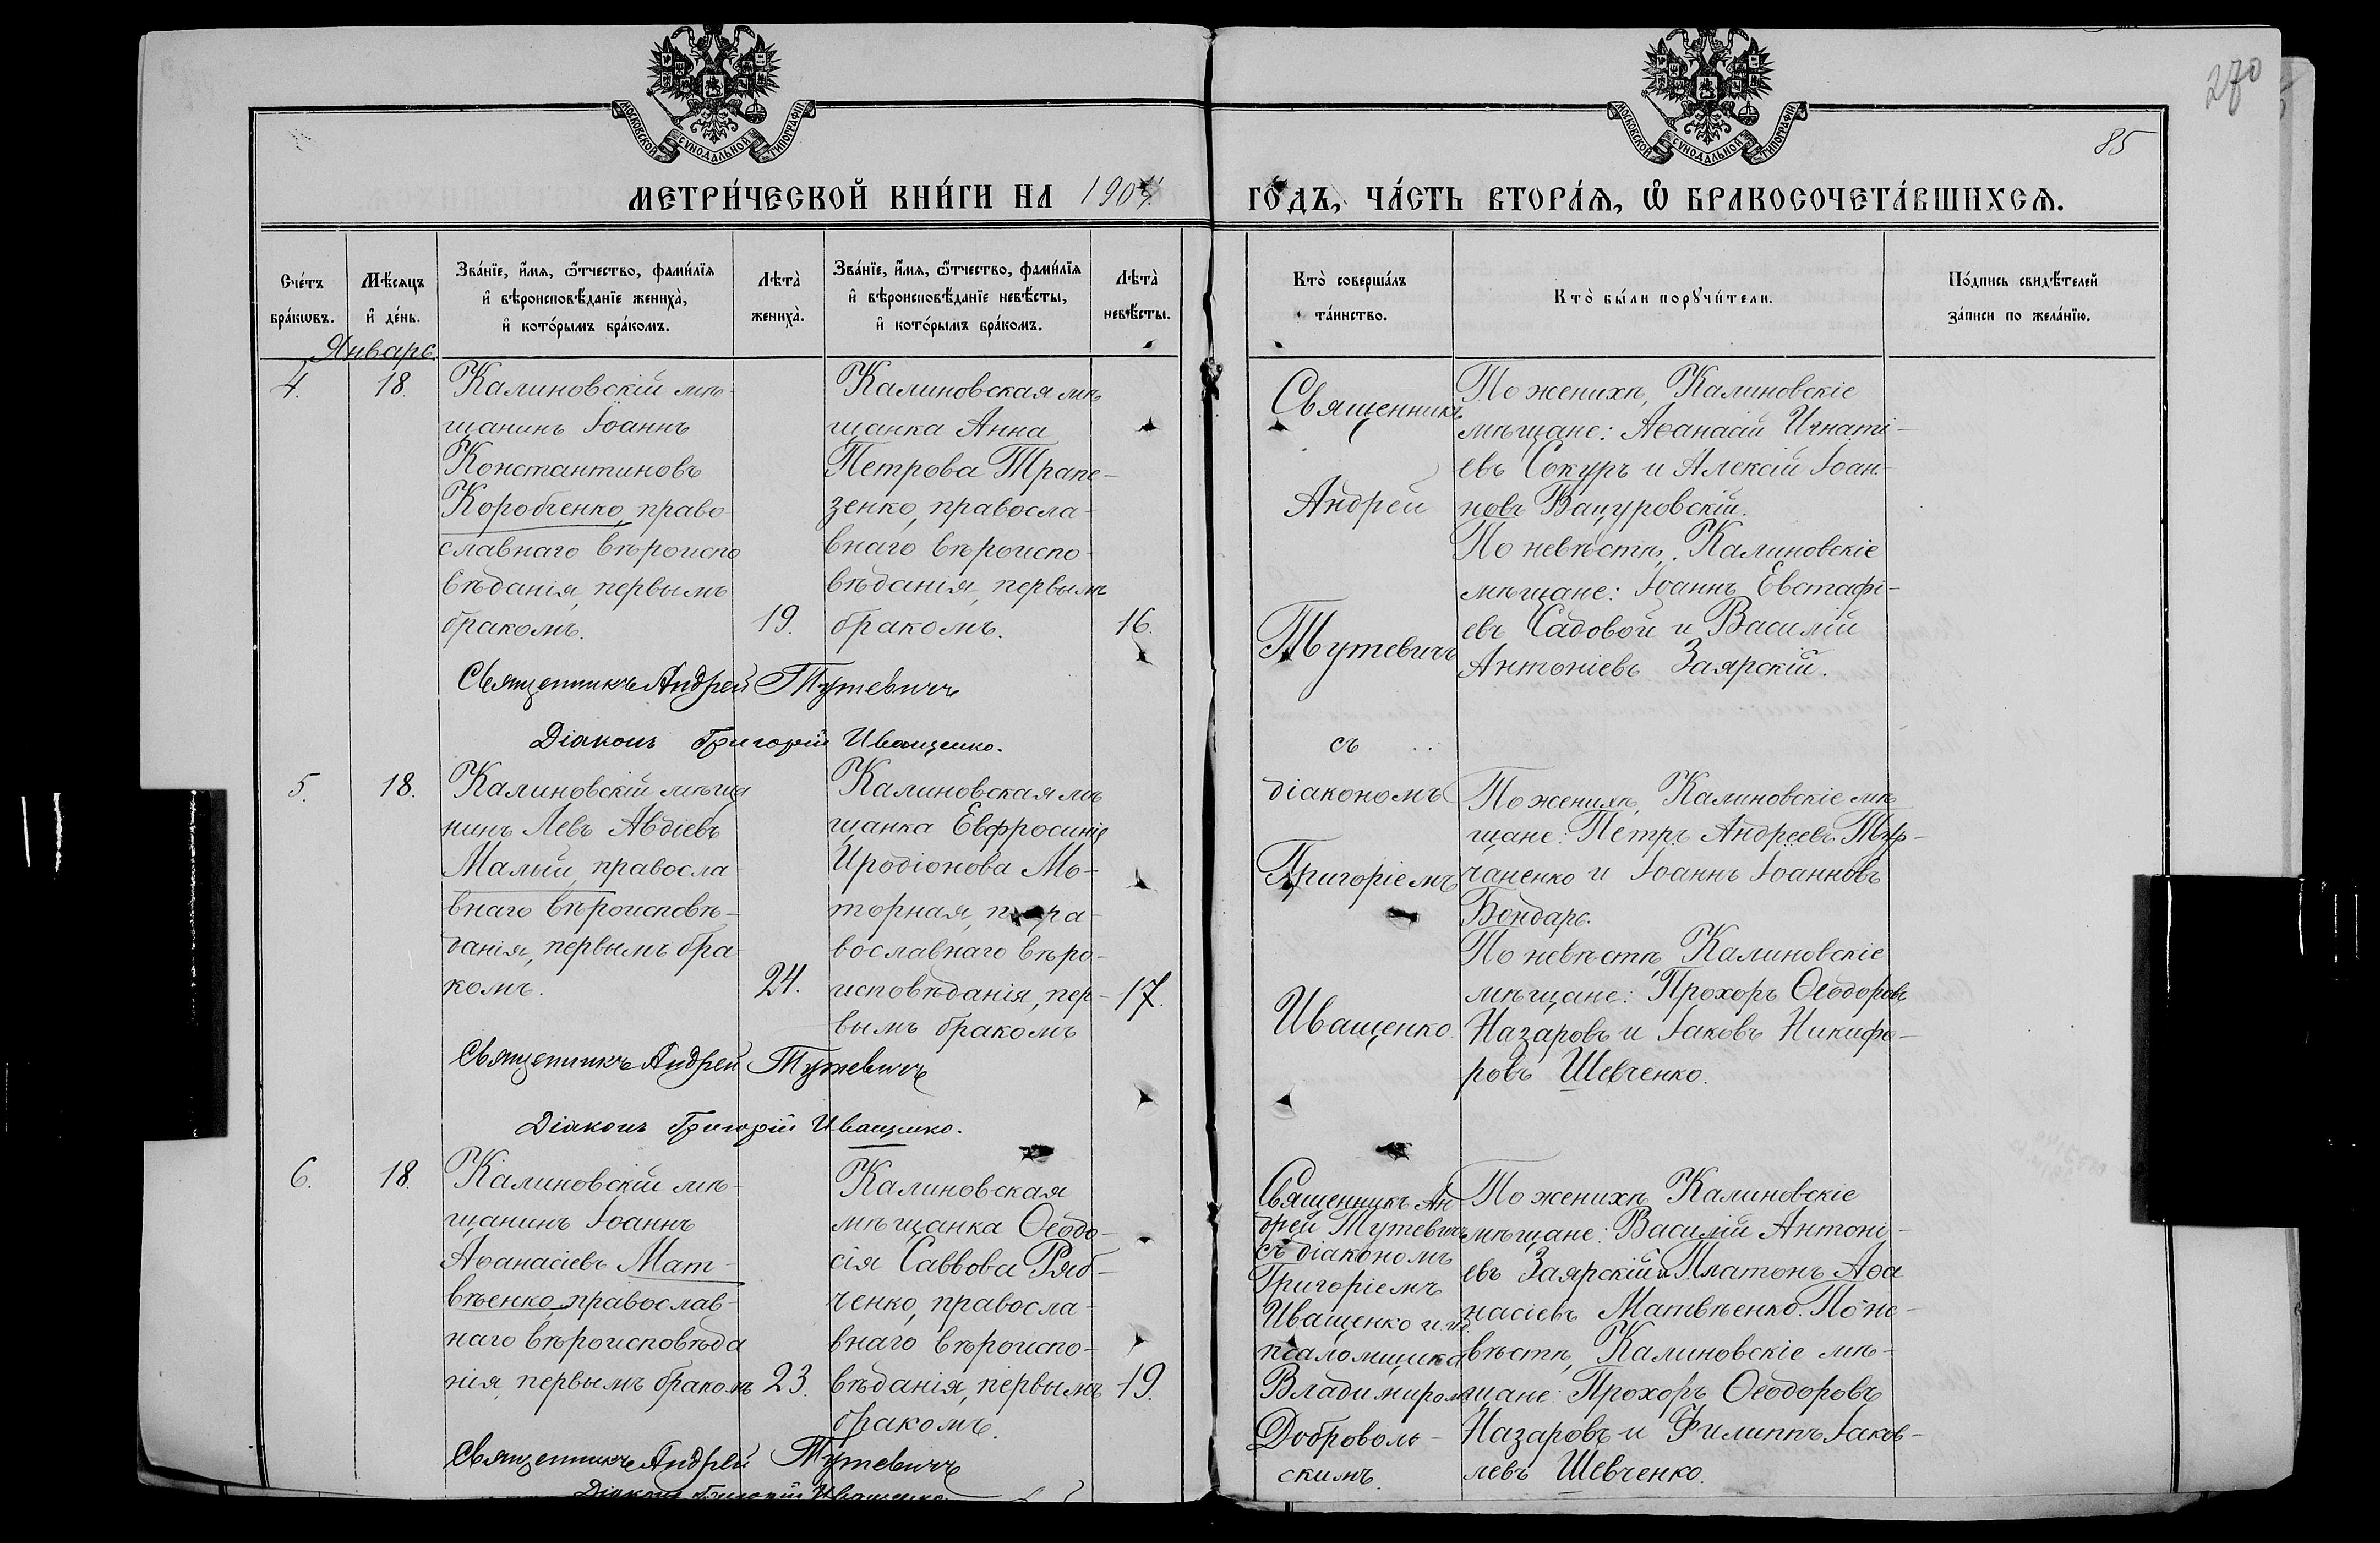 270
85
МОСКОВСКОЙ СУНОДАЛЬНОЙ ТИПОГРАФІИ
МОСКОВСКОЙ СУНОДАЛЬНОЙ ТИПОГРАФІИ
МЕТРИ́ЧЕСКОЙ КНИ́ГИ НА 1904 ГО́ДЪ, ЧА́СТЬ ВТОРА́Ѧ, Ѽ БРАКОСОЧЕТА́ВШИХСѦ.
Сче́тъ
бра́кѡвъ.
Мѣ́сяцъ
и҆ де́нь.
Зва́нїе, и҆́мѧ, ѻ҆́тчество, фами́лїѧ
и҆ вѣроисповѣ́данїе жениха̀,
и҆ кото́рымъ бра́комъ.
Лѣта̀
жениха̀.
Зва́нїе, и҆́мѧ, ѻ҆́тчество, фами́лїѧ
и҆ вѣроисповѣ́данїе невѣ́сты,
и҆ кото́рымъ бра́комъ.
Лѣта̀
невѣ́сты.
Кто̀ соверша́лъ
та́инство.
Кто̀ бы́ли порꙋчи́тели.
По́дпись свидѣ́телей
за́писи по жела́нїю.
Январь
4.
18.
Калиновскій мѣ-
щанинъ Іоаннъ
Константиновъ
Коробченко, право
славнаго вѣроиспо
вѣданія, первымъ
бракомъ.
19.
Калиновская мѣ
щанка Анна
Петрова Трапе-
зенко, правосла-
внаго вѣроиспо-
вѣданія, первымъ
бракомъ.
16.
Священникъ Андрей Тутевичъ
Діаконъ Григорій Иващенко.
Священникъ
Андрей
Тутевичъ
съ
діакономъ
Григоріемъ
Иващенко.
По женихѣ, Калиновскіе
мѣщане: Аѳанасій Игнаті-
евъ Сокуръ и Алексій Іоан-
новъ Вацуровскій.
По невѣстѣ, Калиновскіе
мѣщане: Іоаннъ Евстафі-
евъ Садовой и Василій
Антоніевъ Заярскій.
5.
18.
Калиновскій мѣща
нинъ Левъ Авдіевъ
Малый, правосла
внаго вѣроисповѣ-
данія, первымъ бра
комъ.
24.
Калиновская мѣ
щанка Евфросинія
Иродіонова Мо-
торная, пра-
вославнаго вѣро-
исповѣданія, пер-
вымъ бракомъ
17.
Священникъ Андрей Тутевичъ
Діаконъ Григорій Иващенко.
По женихѣ, Калиновскіе мѣ
щане: Петръ Андреевъ Тур-
чаненко и Іоаннъ Іоанновъ
Бондарь.
По невѣстѣ Калиновскіе
мѣщане: Прохоръ Ѳеодоровъ
Назаровъ и Іаковъ Никифо-
ровъ Шевченко.
6.
18.
Калиновскій мѣ-
щанинъ Іоаннъ
Аѳанасіевъ Мат-
вѣенко, православ-
наго вѣроисповѣда
нія, первымъ бракомъ
23.
Калиновская
мѣщанка Ѳеодо-
сія Саввова Ряб-
ченко, правосла-
внаго вѣроиспо-
вѣданія, первымъ
бракомъ.
19.
Священникъ Андрей Тутевичъ
Діаконъ Григорій Иващенко
Священникъ Ан-
дрей Тутевичъ
съ діакономъ
Григоріемъ
Иващенко и
псаломщика
Владимиромъ
Доброволь-
скимъ.
По женихѣ Калиновскіе
мѣщане: Василій Антоні-
евъ Заярскій и Платонъ Аѳа
насіевъ Матвѣенко. По не-
вѣстѣ, Калиновскіе мѣ-
щане: Прохоръ Ѳеодоровъ
Назаровъ и Филиппъ Іаков-
левъ Шевченко.